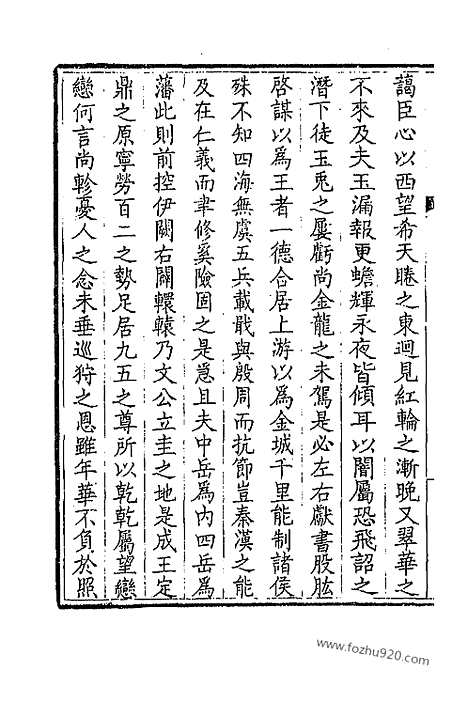 藹臣心以西望希天睠之東迴見紅輪之漸晚又翠華之
不來及夫玉漏報更蟾輝永夜皆傾耳以闇屬恐飛詔之
潛下徒玉兎之屢虧尚金龍之未駕是必左右獻書股肱
啓謀以爲王者一德合居上游以爲金城千里能制諸侯
殊不知四海無虞五兵載戢與殷周而抗節豈秦漢之能
及在仁義而聿修奚險固之是怠且夫中岳爲内四岳爲
藩此則前控伊闕右闢轘轅乃文公立圭之地是成王定
鼎之原寧勞百二之勢足居九五之尊所以乾乾屬望戀
戀何言尚軫憂人之念未垂巡狩之恩雖年華不負於照
www.fozhu920.com